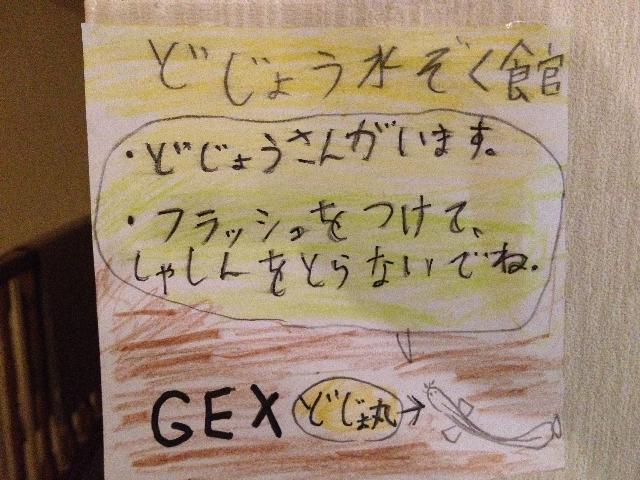 どじょう水ぞく館
・どじょうさんがいます。
・フラッシュをつけて、
しゃしんをとらないでね.
GEX どじょ丸→